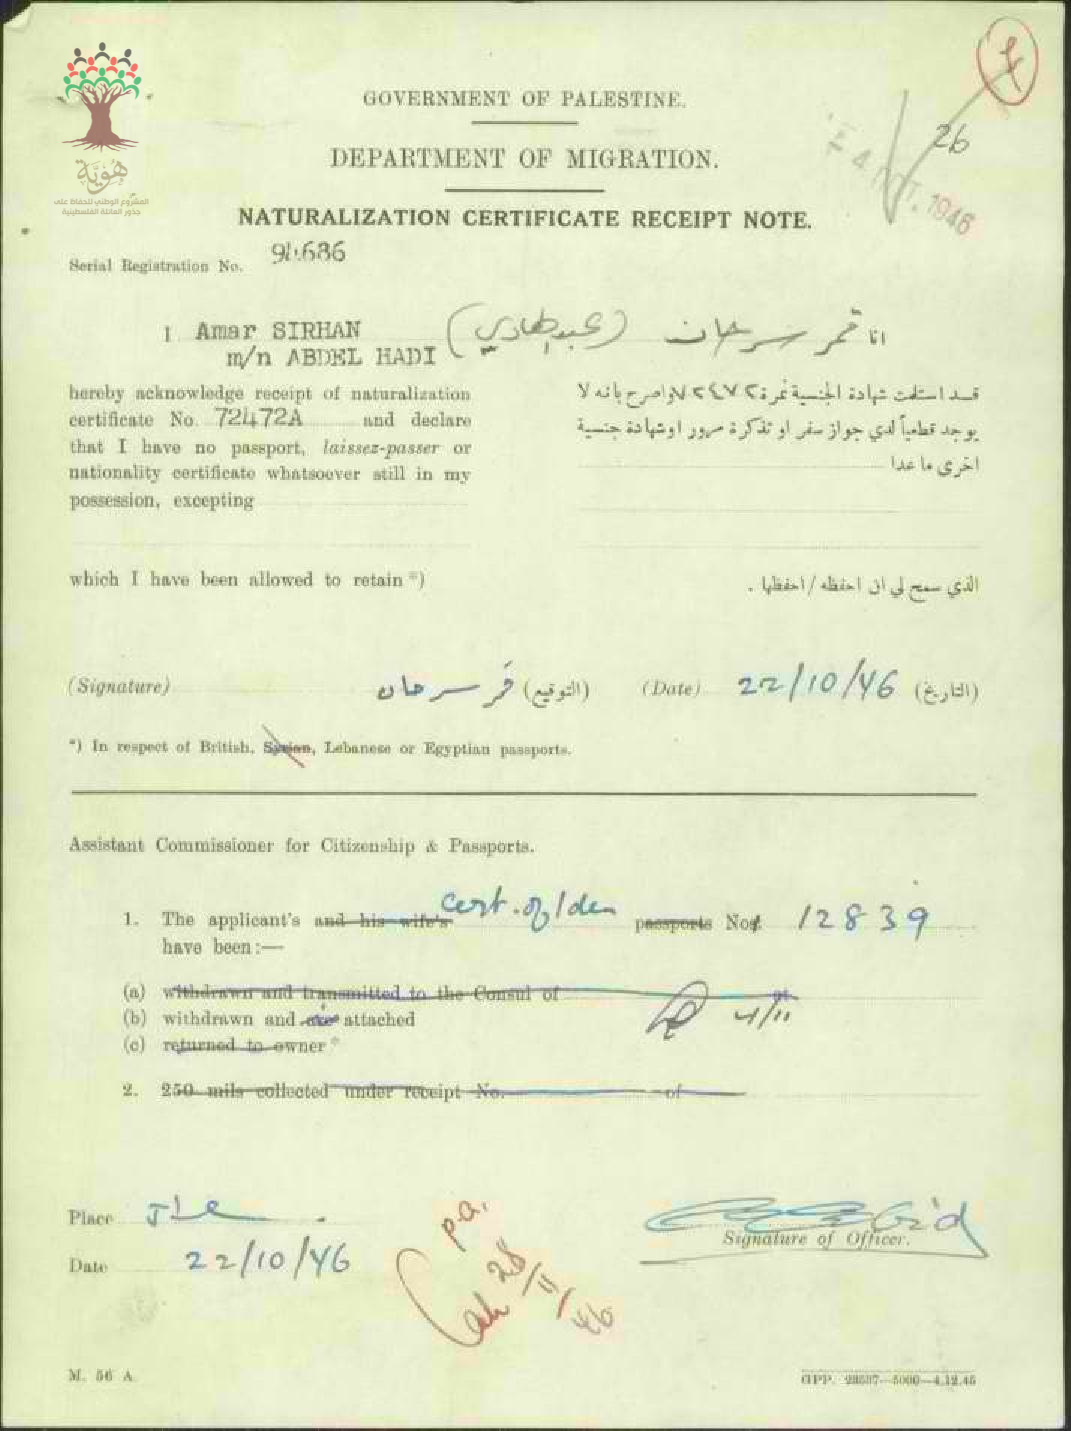 هوية
المشروع الوطني للحفاظ على
جذور العائلة الفلسطينية
GOVERNMENT OF PALESTINE.
26
DEPARTMENT OF MIGRATION.
1946
NATURALIZATION CERTIFICATE RECEIPT NOTE.
Serial Registration No. 94686
I Amar SIRHAN
m/n ABDEL HADI
انا قمر سرحان (عبد الهادي)
hereby acknowledge receipt of naturalization
certificate No. 72472A and declare
that I have no passport, laissez-passer or
nationality certificate whatsoever still in my
possession, excepting
قد استلمت شهادة الجنسية نمرة ٧٢٤٧٢ واصرح بانه لا
يوجد قطعياً لدي جواز سفر او تذكرة مرور او شهادة جنسية
اخرى ما عدا
which I have been allowed to retain *)
الذي سمح لي ان احفظه / احفظها .
(Signature) قمر سرحان (التوقيع) (Date) 22/10/46 (التاريخ)
*) In respect of British, Syrian, Lebanese or Egyptian passports.
Assistant Commissioner for Citizenship & Passports.
1. The applicant's and his wife's cert. of Iden passports Nos. 12839
have been:—
(a) withdrawn and transmitted to the Consul of at
(b) withdrawn and are attached 4/11
(c) returned to owner *
2. 250 mils collected under receipt No. of
Place Jle
Date 22/10/46
Signature of Officer.
p.a.
28/11/46
M. 56 A.
GPP. 28587—5000—4.12.45